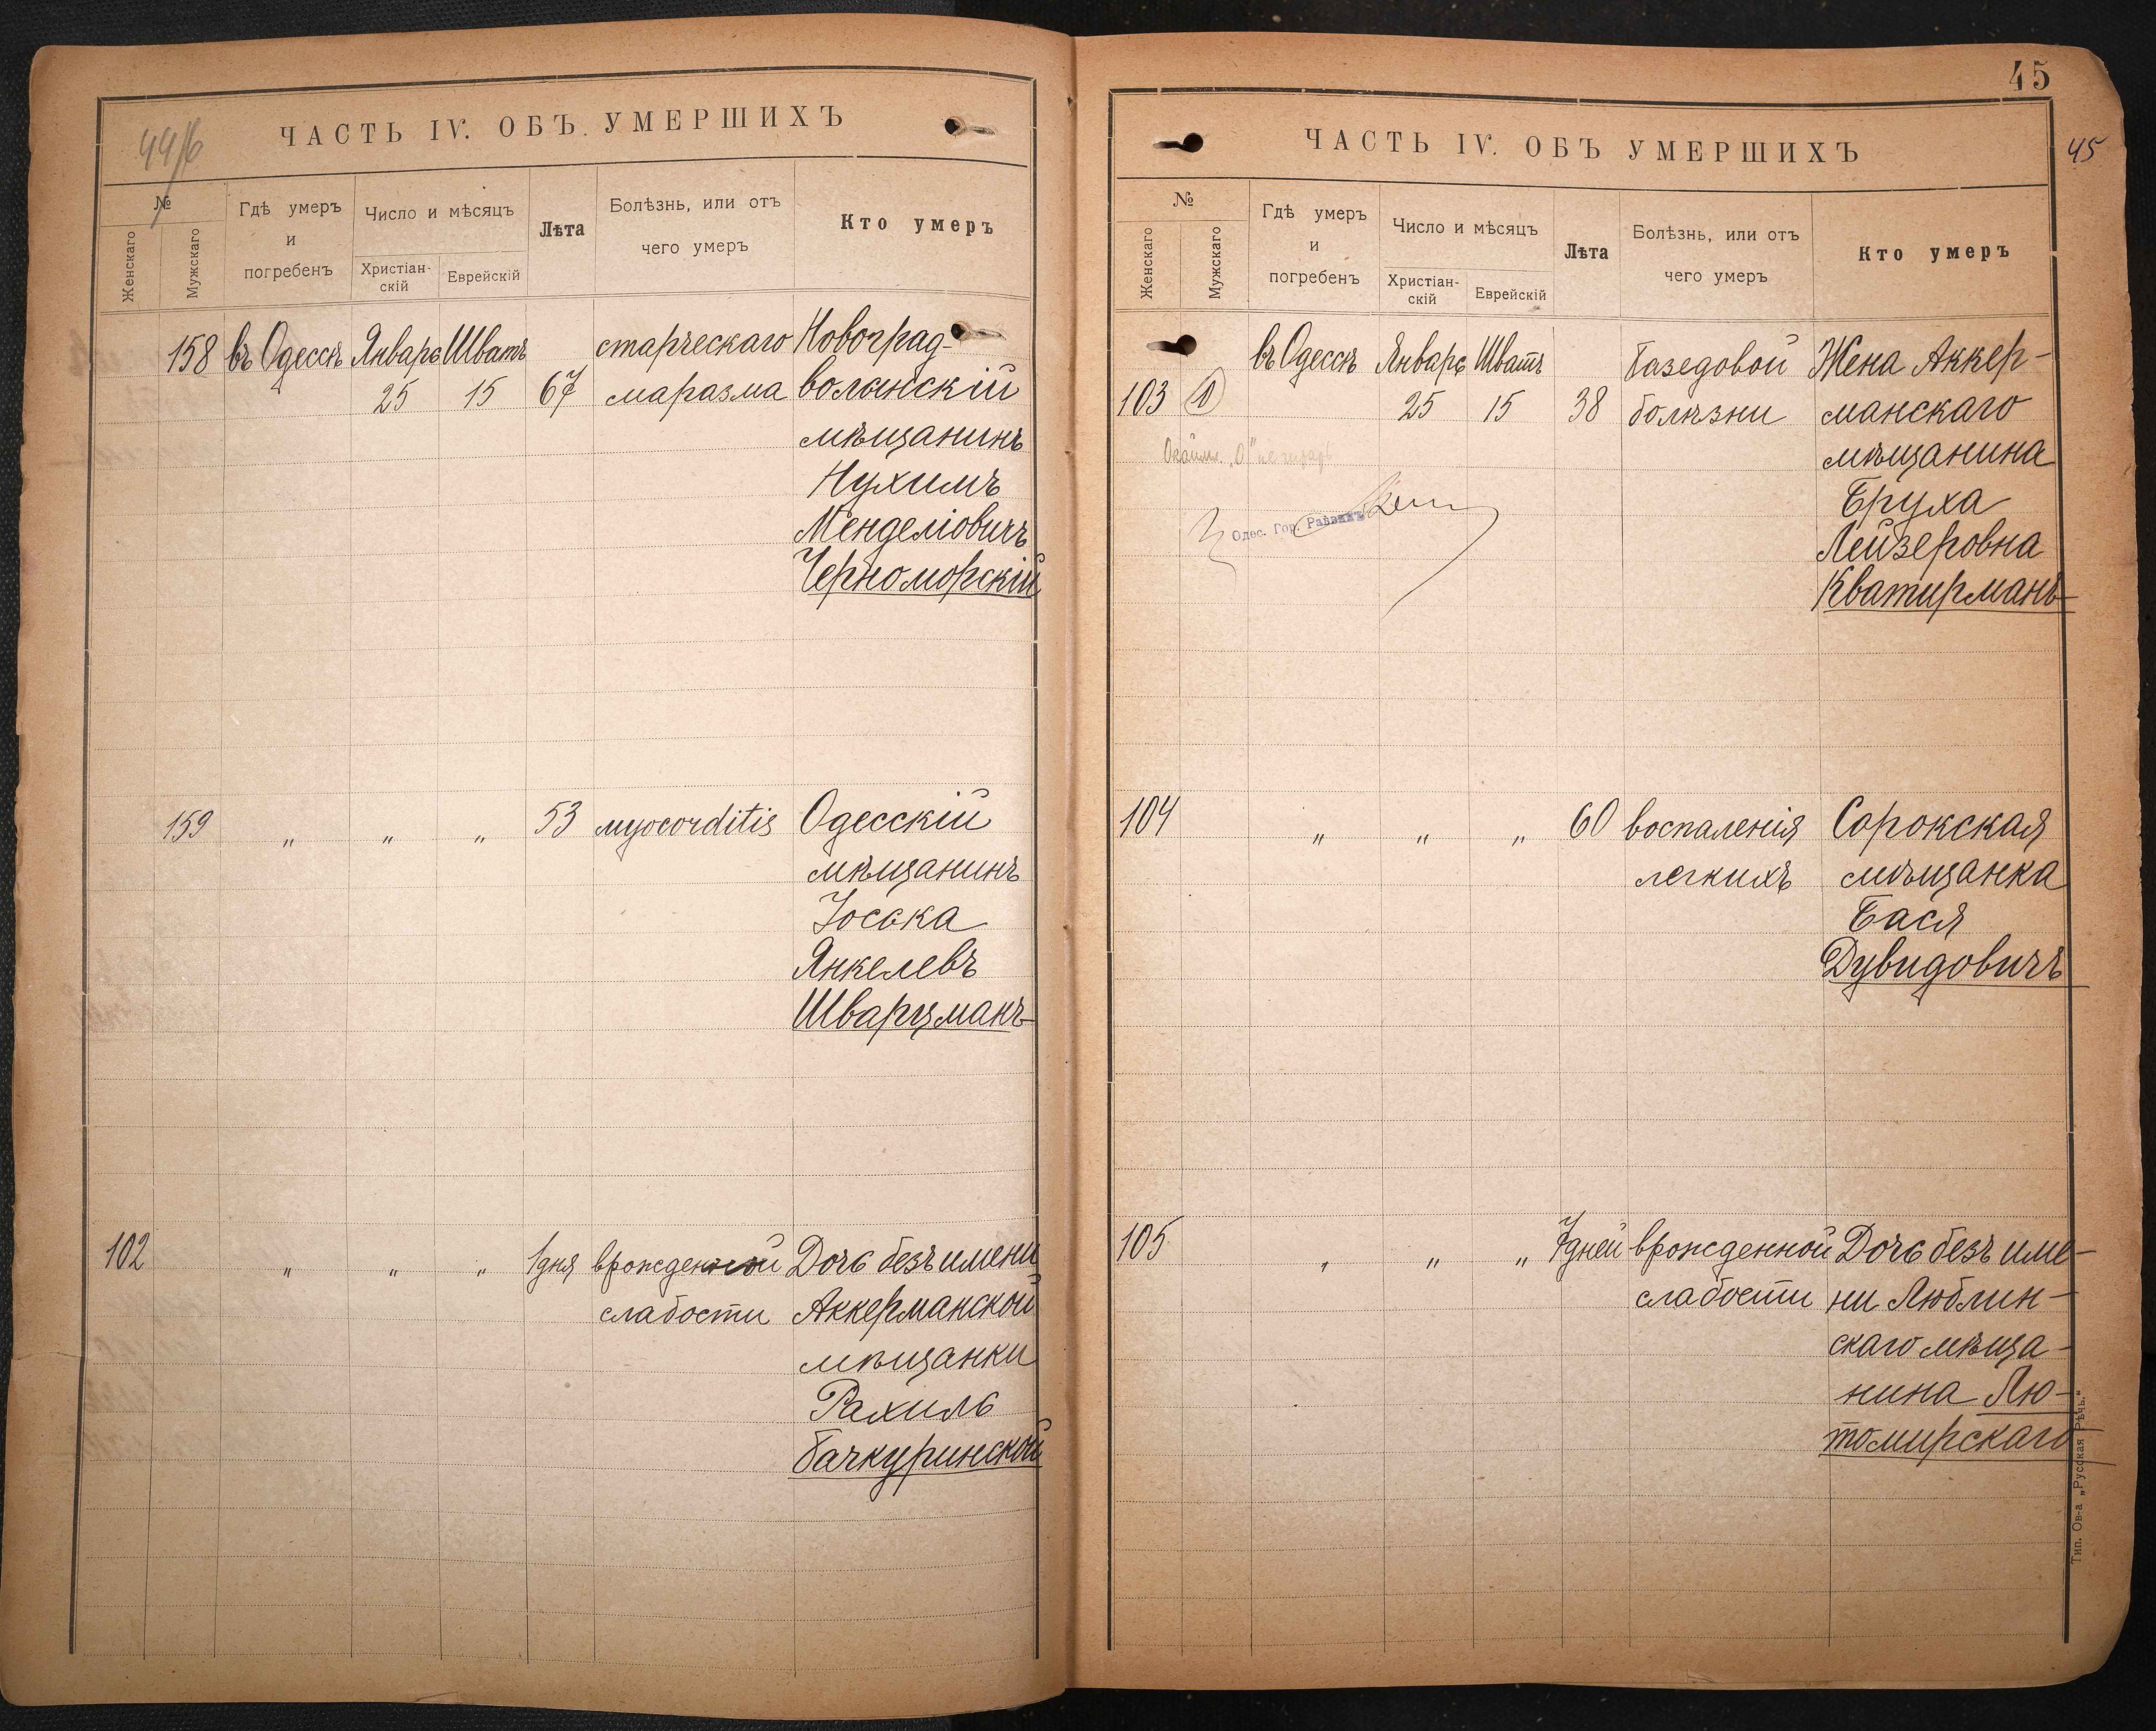 44 об
ЧАСТЬ IV. ОБЪ УМЕРШИХЪ
№
Женскаго
Мужскаго
Гдѣ умеръ
и
погребенъ
Число и мѣсяцъ
Христіан-
скій
Еврейскій
Лѣта
Болѣзнь, или отъ
чего умеръ
Кто умеръ
158 въ Одессѣ Январь Шватъ старческаго Новоград-
25 15 67 маразма волынскій
мѣщанинъ
Нухимъ
Менделіовичъ
Черноморскій
159 „ „ „ 53 myocorditis Одесскій
мѣщанинъ
Іоська
Янкелевъ
Шварцманъ
102 „ „ „ 1 дня врожденной Дочь безъ имени
слабости Аккерманской
мѣщанки
Рахиль
Бачкуринской
45
45
ЧАСТЬ IV. ОБЪ УМЕРШИХЪ
№
Женскаго
Мужскаго
Гдѣ умеръ
и
погребенъ
Число и мѣсяцъ
Христіан-
скій
Еврейскій
Лѣта
Болѣзнь, или отъ
чего умеръ
Кто умеръ
въ Одессѣ Январь Шватъ базедовой Жена Аккер-
103 25 15 38 болѣзни манскаго
мѣщанина
Бруха
Лейзеровна
Кватирманъ
Одес. Гор. Раввинъ
104 „ „ „ 60 воспаленія Сорокская
легкихъ мѣщанка
Бася
Дувидовичъ
105 „ „ „ 7 дней врожденной Дочь безъ име-
слабости ни Люблин-
скаго мѣща-
нина Лю-
томирскаго
Тип. Ов-а „Русская Рѣчь.“